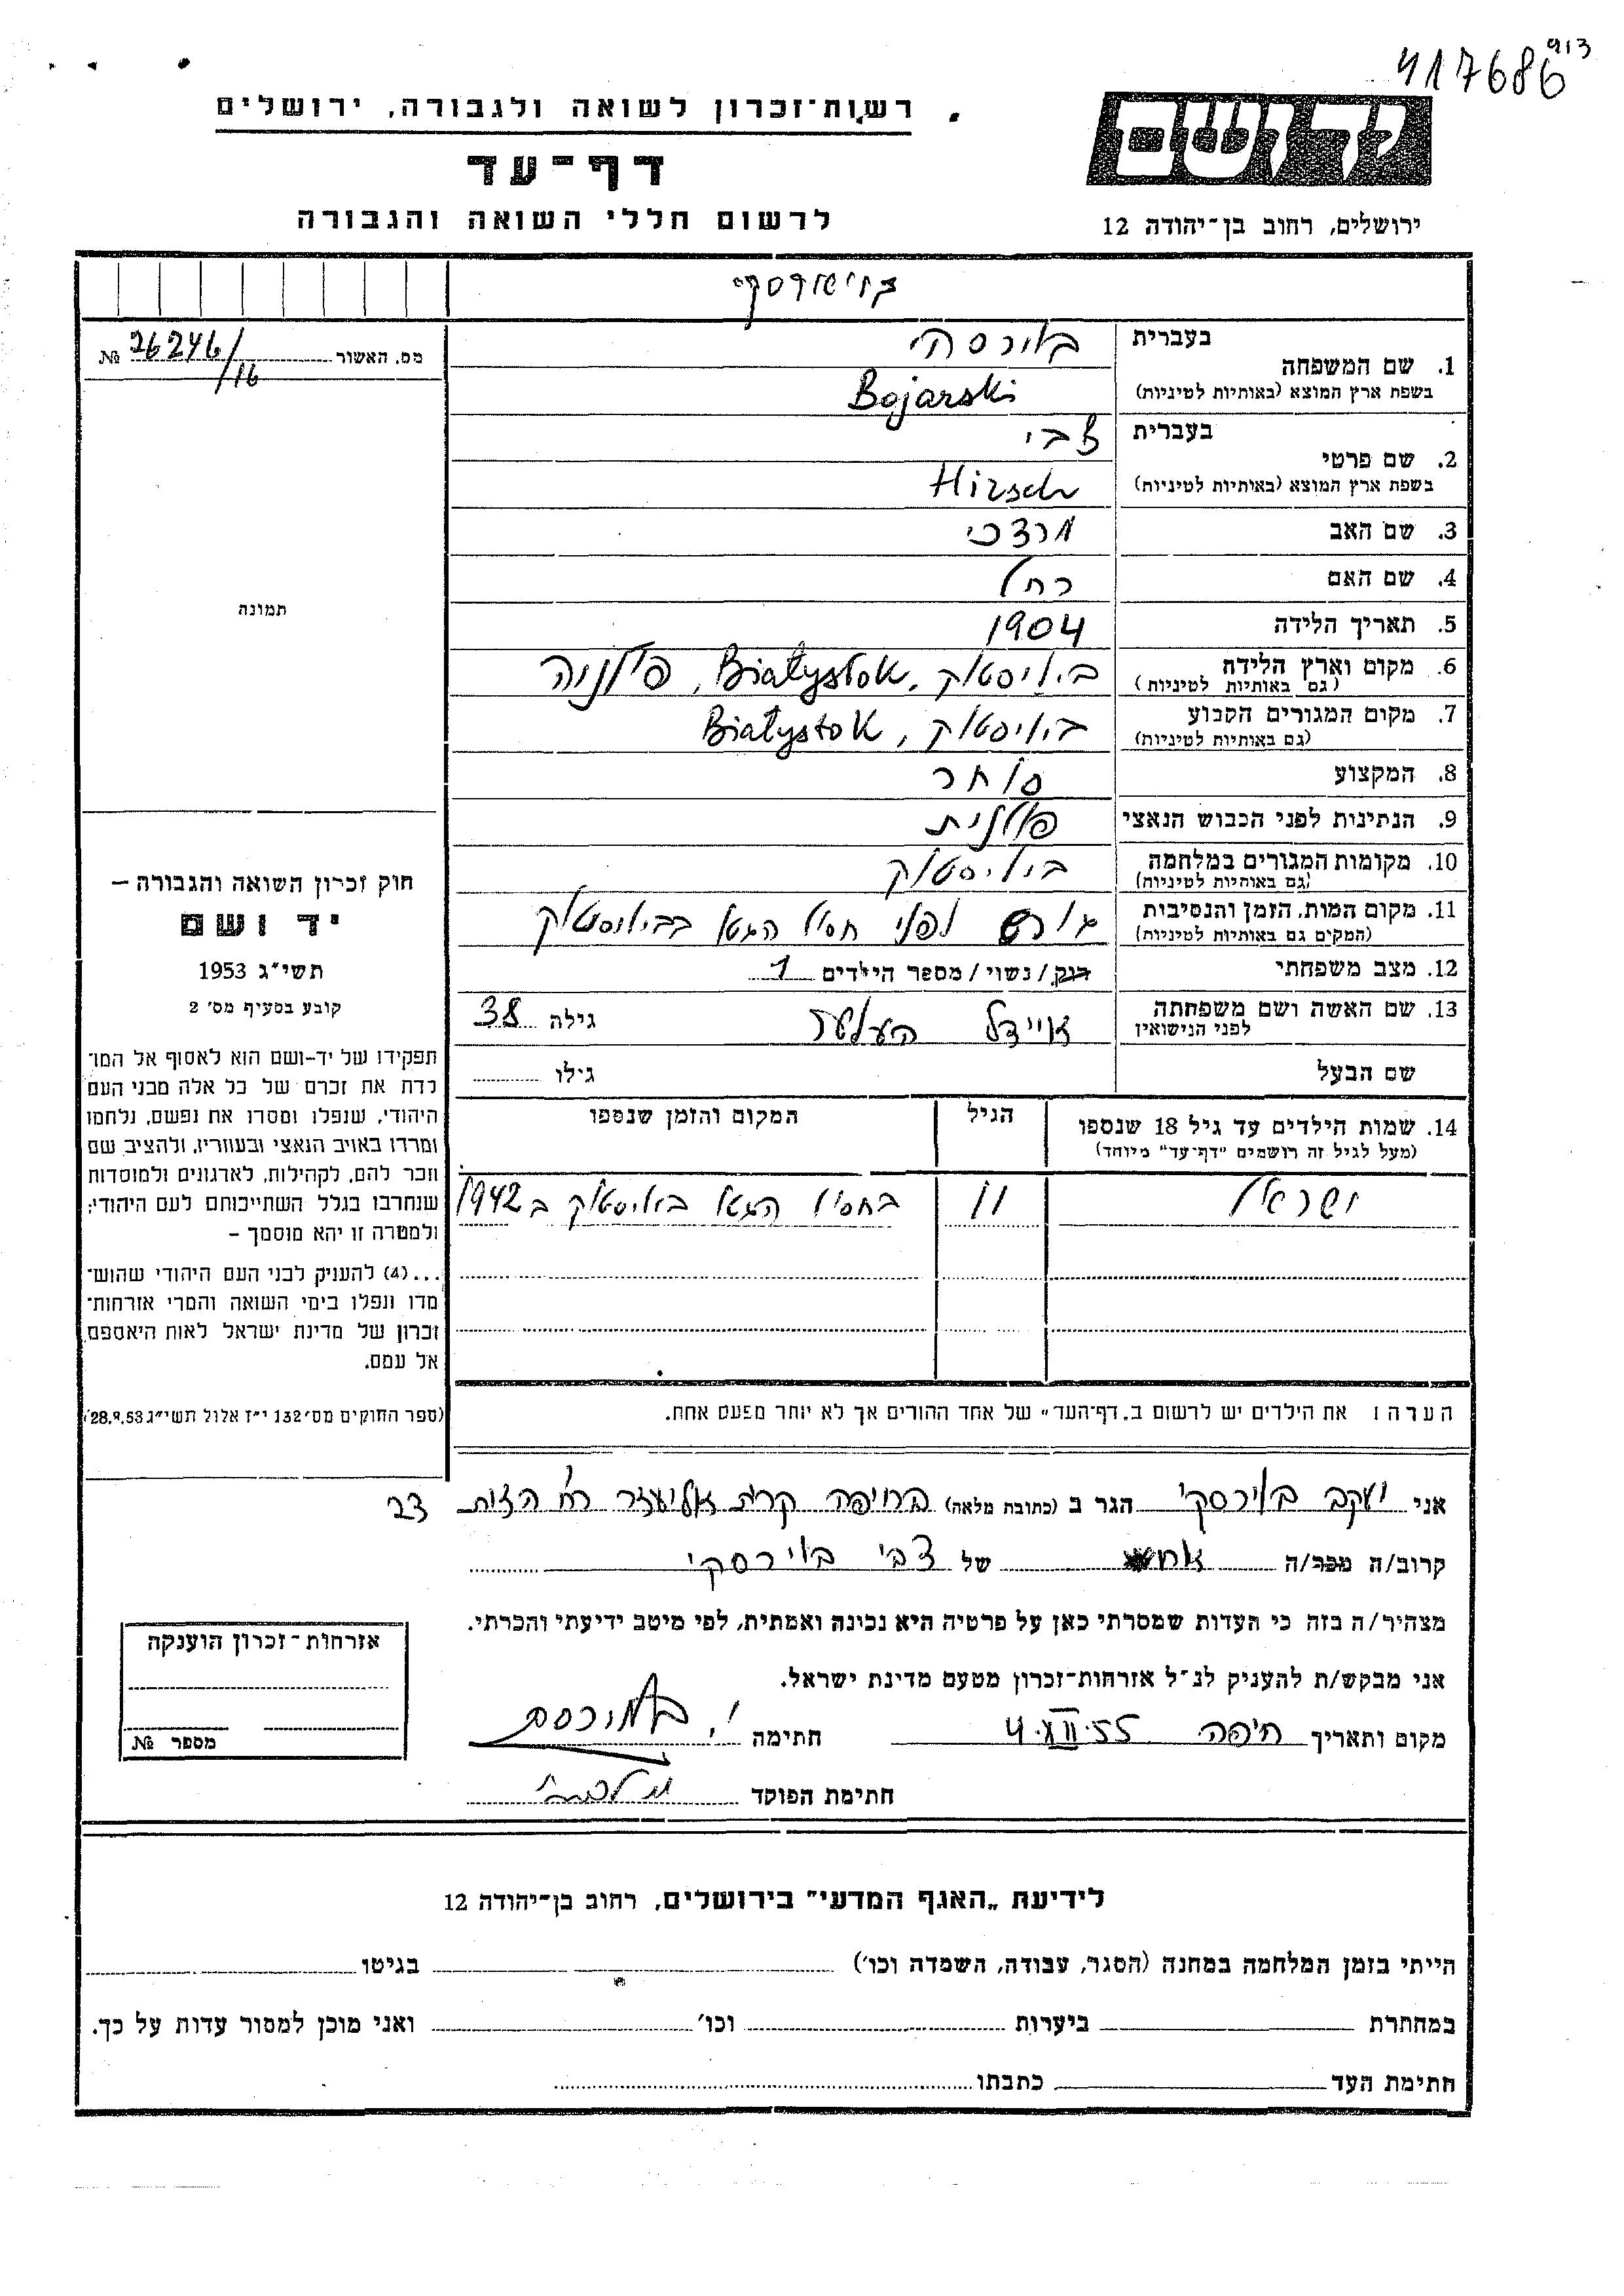 417686 913
ידושם
רשות־זכרון לשואה ולגבורה, ירושלים
דף־עד
לרשום חללי השואה והגבורה
ירושלים, רחוב בן־יהודה 12
מס. האשור № 26246/16
1. שם המשפחה
בעברית בוירסקי
בשפת ארץ המוצא (באותיות לטיניות) Bojarski
2. שם פרטי
בעברית צבי
בשפת ארץ המוצא (באותיות לטיניות) Hirsch
3. שם האב מרדכי
4. שם האם רחל
5. תאריך הלידה 1904
6. מקום וארץ הלידה ביליסטוק, Białystok, פולניה
(גם באותיות לטיניות)
7. מקום המגורים הקבוע ביליסטוק, Białystok
(גם באותיות לטיניות)
8. המקצוע סוחר
9. הנתינות לפני הכבוש הנאצי פולנית
10. מקומות המגורים במלחמה ביליסטוק
(גם באותיות לטיניות)
11. מקום המות, הזמן והנסיבות גורש לפני חסול הגטו בביליסטוק
(המקום גם באותיות לטיניות)
12. מצב משפחתי רוק/נשוי/מספר הילדים 1
13. שם האשה ושם משפחתה איידל גילה 38
לפני הנישואין
שם הבעל גילו
14. שמות הילדים עד גיל 18 שנספו הגיל המקום והזמן שנספו
(מעל לגיל זה רושמים "דף־עד" מיוחד)
ישראל 11 בחסול הגטו ביליסטוק ב 1942
הערה: את הילדים יש לרשום ב„דף־העד" של אחד ההורים אך לא יותר מפעם אחת.
תמונה
חוק זכרון השואה והגבורה —
יד ושם
תשי"ג 1953
קובע בסעיף מס׳ 2
תפקידו של יד-ושם הוא לאסוף אל המו־
לדת את זכרם של כל אלה מבני העם
היהודי, שנפלו ומסרו את נפשם, נלחמו
ומרדו באויב הנאצי ובעוזריו, ולהציב שם
וזכר להם, לקהילות, לארגונים ולמוסדות
שנחרבו בגלל השתייכותם לעם היהודי;
ולמטרה זו יהא מוסמך —
...(4) להעניק לבני העם היהודי שהוש־
מדו ונפלו בימי השואה והמרי אזרחות־
זכרון של מדינת ישראל לאות היאספם
אל עמם.
(ספר החוקים מס׳ 132 י"ז אלול תשי"ג 28.9.53)
אני יעקב בוירסקי הגר ב (כתובת מלאה) בחיפה קרית אליעזר רח׳
קרוב/ה מכר/ה של צבי בוירסקי
מצהיר/ה בזה כי העדות שמסרתי כאן על פרטיה היא נכונה ואמתית, לפי מיטב ידיעתי והכרתי.
אני מבקש/ת להעניק לנ"ל אזרחות־זכרון מטעם מדינת ישראל.
מקום ותאריך חיפה 4.XII.55 חתימה
חתימת הפוקד
אזרחות־זכרון הוענקה
מספר №
לידיעת „האגף המדעי" בירושלים, רחוב בן־יהודה 12
הייתי בזמן המלחמה במחנה (הסגר, עבודה, השמדה וכו׳) בגיטו
במחתרת ביערות וכו׳ ואני מוכן למסור עדות על כך.
חתימת העד כתבתו